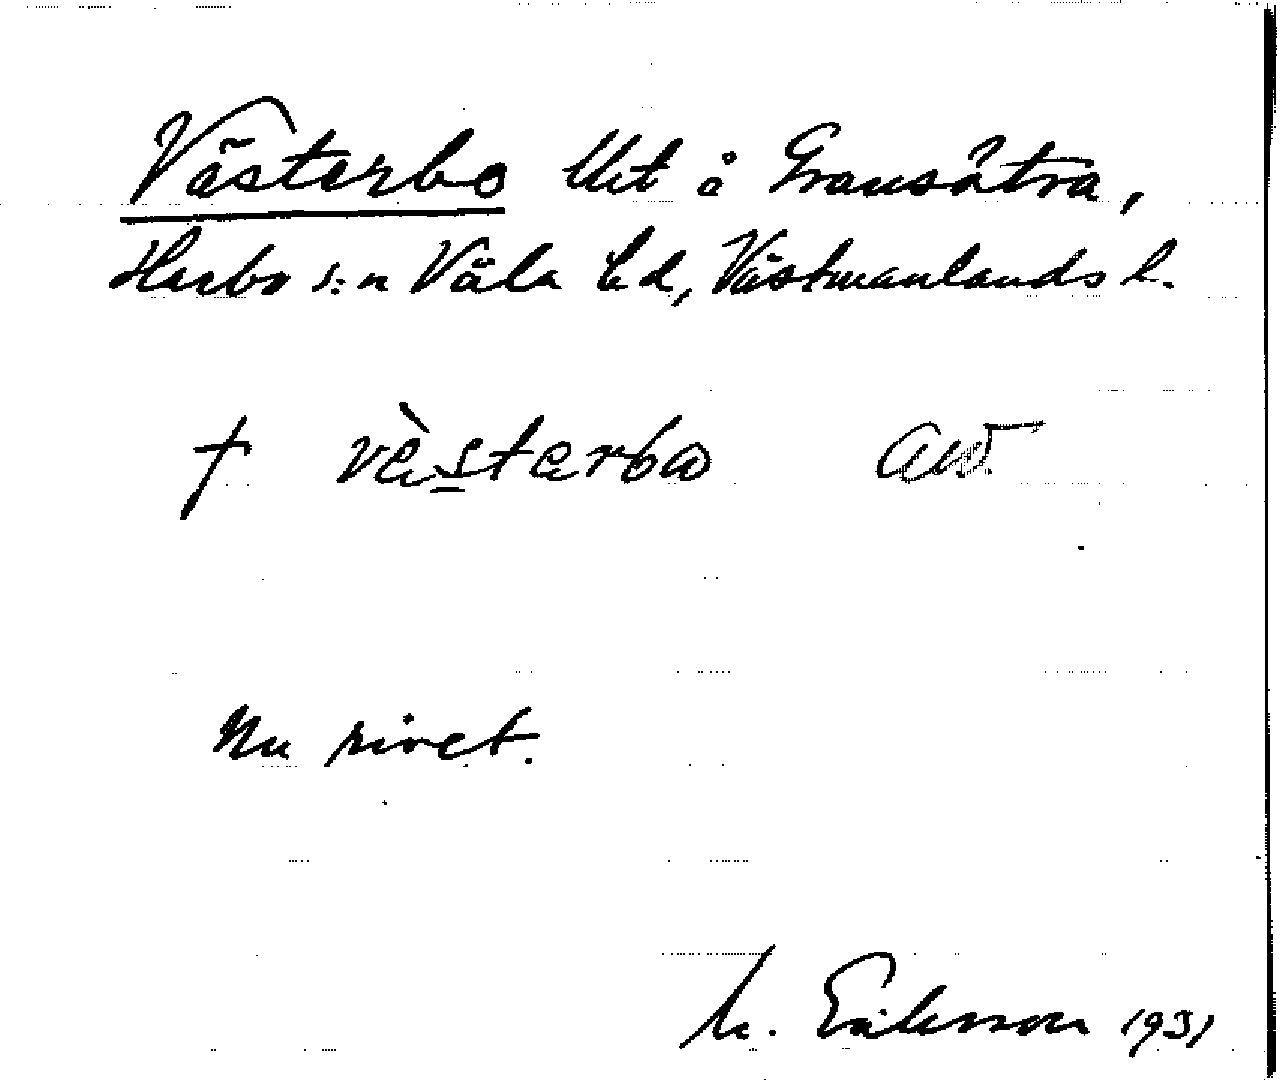 Västerbo tht å Gransätra,
Harbo s:n Våla hd, Västmanlands l.
† vèsterbω
Nu rivet.
M. Eriksson 1931